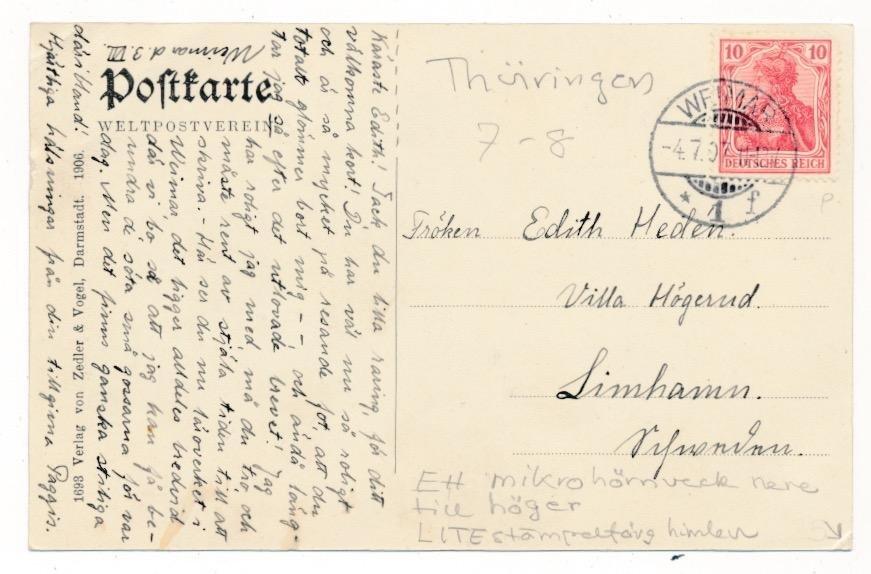 Weimar d. 3 VII
Postkarte
WELTPOSTVEREIN
Käraste Edith! Tack du lilla raring, för ditt
välkomna kort! Du har väl nu så roligt
och är så mycket på resande fot, att du
totalt glömmer bort mig – –, och ändå läng-
tar jag så efter det utlovade brevet! Jag
har roligt jag med, må du tro, och
måste rent av stjäla tiden till att
skriva. – Här ser du nu i
Weimar, det ligger alldeles bredvid
där vi bo så att jag kan få be-
undra de söta små gossarna för var
dag. Men det finns ganska stiliga
däribland!
Hjärtliga hälsningar från din tillgivna
1693 Verlag von Zedler & Vogel, Darmstadt. 1906.
Thüringen
7 - 8
10 10
DEUTSCHES REICH
WEIMAR
-4.7.07
* 1 f
Fröken Edith Heden.
Villa Högerud.
Limhamn.
Schweden.
Ett mikrohörnveck nere
till höger
LITE stämpelfärg himlen